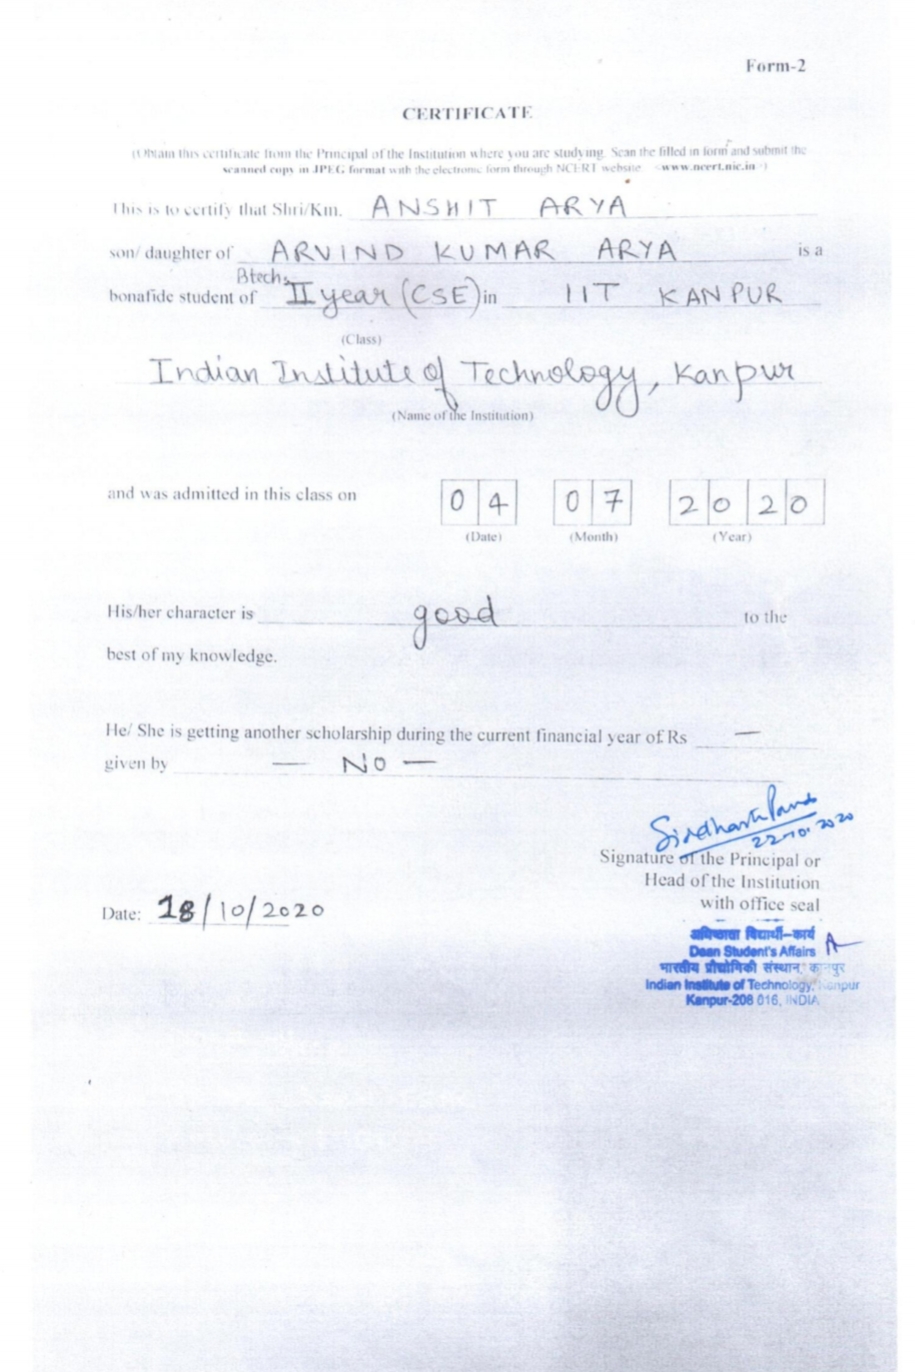 Form-2
CERTIFICATE
(Obtain this certificate from the Principal of the Institution where you are studying. Scan the filled in form and submit the
scanned copy in JPEG format with the electronic form through NCERT website <www.ncert.nic.in>)
This is to certify that Shri/Km. ANSHIT ARYA
son/ daughter of ARVIND KUMAR ARYA is a
Btech,
bonafide student of II year (CSE) in IIT KANPUR
(Class)
Indian Institute of Technology, Kanpur
(Name of the Institution)
and was admitted in this class on 04 07 2020
(Date) (Month) (Year)
His/her character is good to the
best of my knowledge.
He/ She is getting another scholarship during the current financial year of Rs —
given by — No —
22-10-2020
Signature of the Principal or
Head of the Institution
with office seal
Date: 18/10/2020
अधिष्ठाता विद्यार्थी-कार्य
Dean Student's Affairs
भारतीय प्रौद्योगिकी संस्थान, कानपुर
Indian Institute of Technology, Kanpur
Kanpur-208 016, INDIA